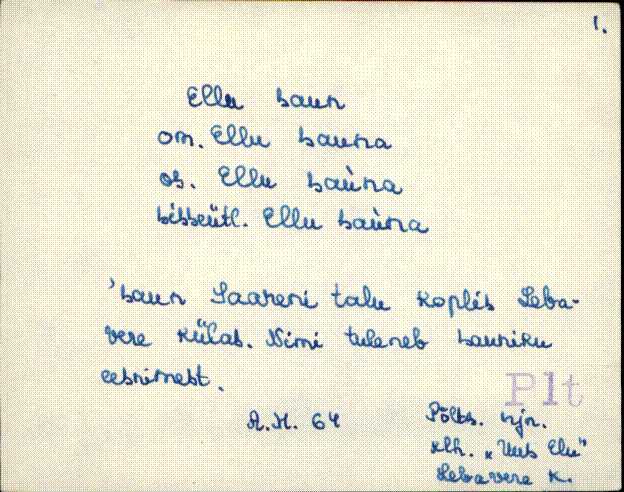 1.
Ellu saun
om. Ellu sauna
os. Ellu saùna
sisseütl. Ellu saùna
'saun Saareni talu koplis Leba-
vere külas. Nimi tuleneb sauniku
eesnimest.
Plt
A.H. 64
Põlts. njn.
klh. „Uus Elu"
Lebavere k.